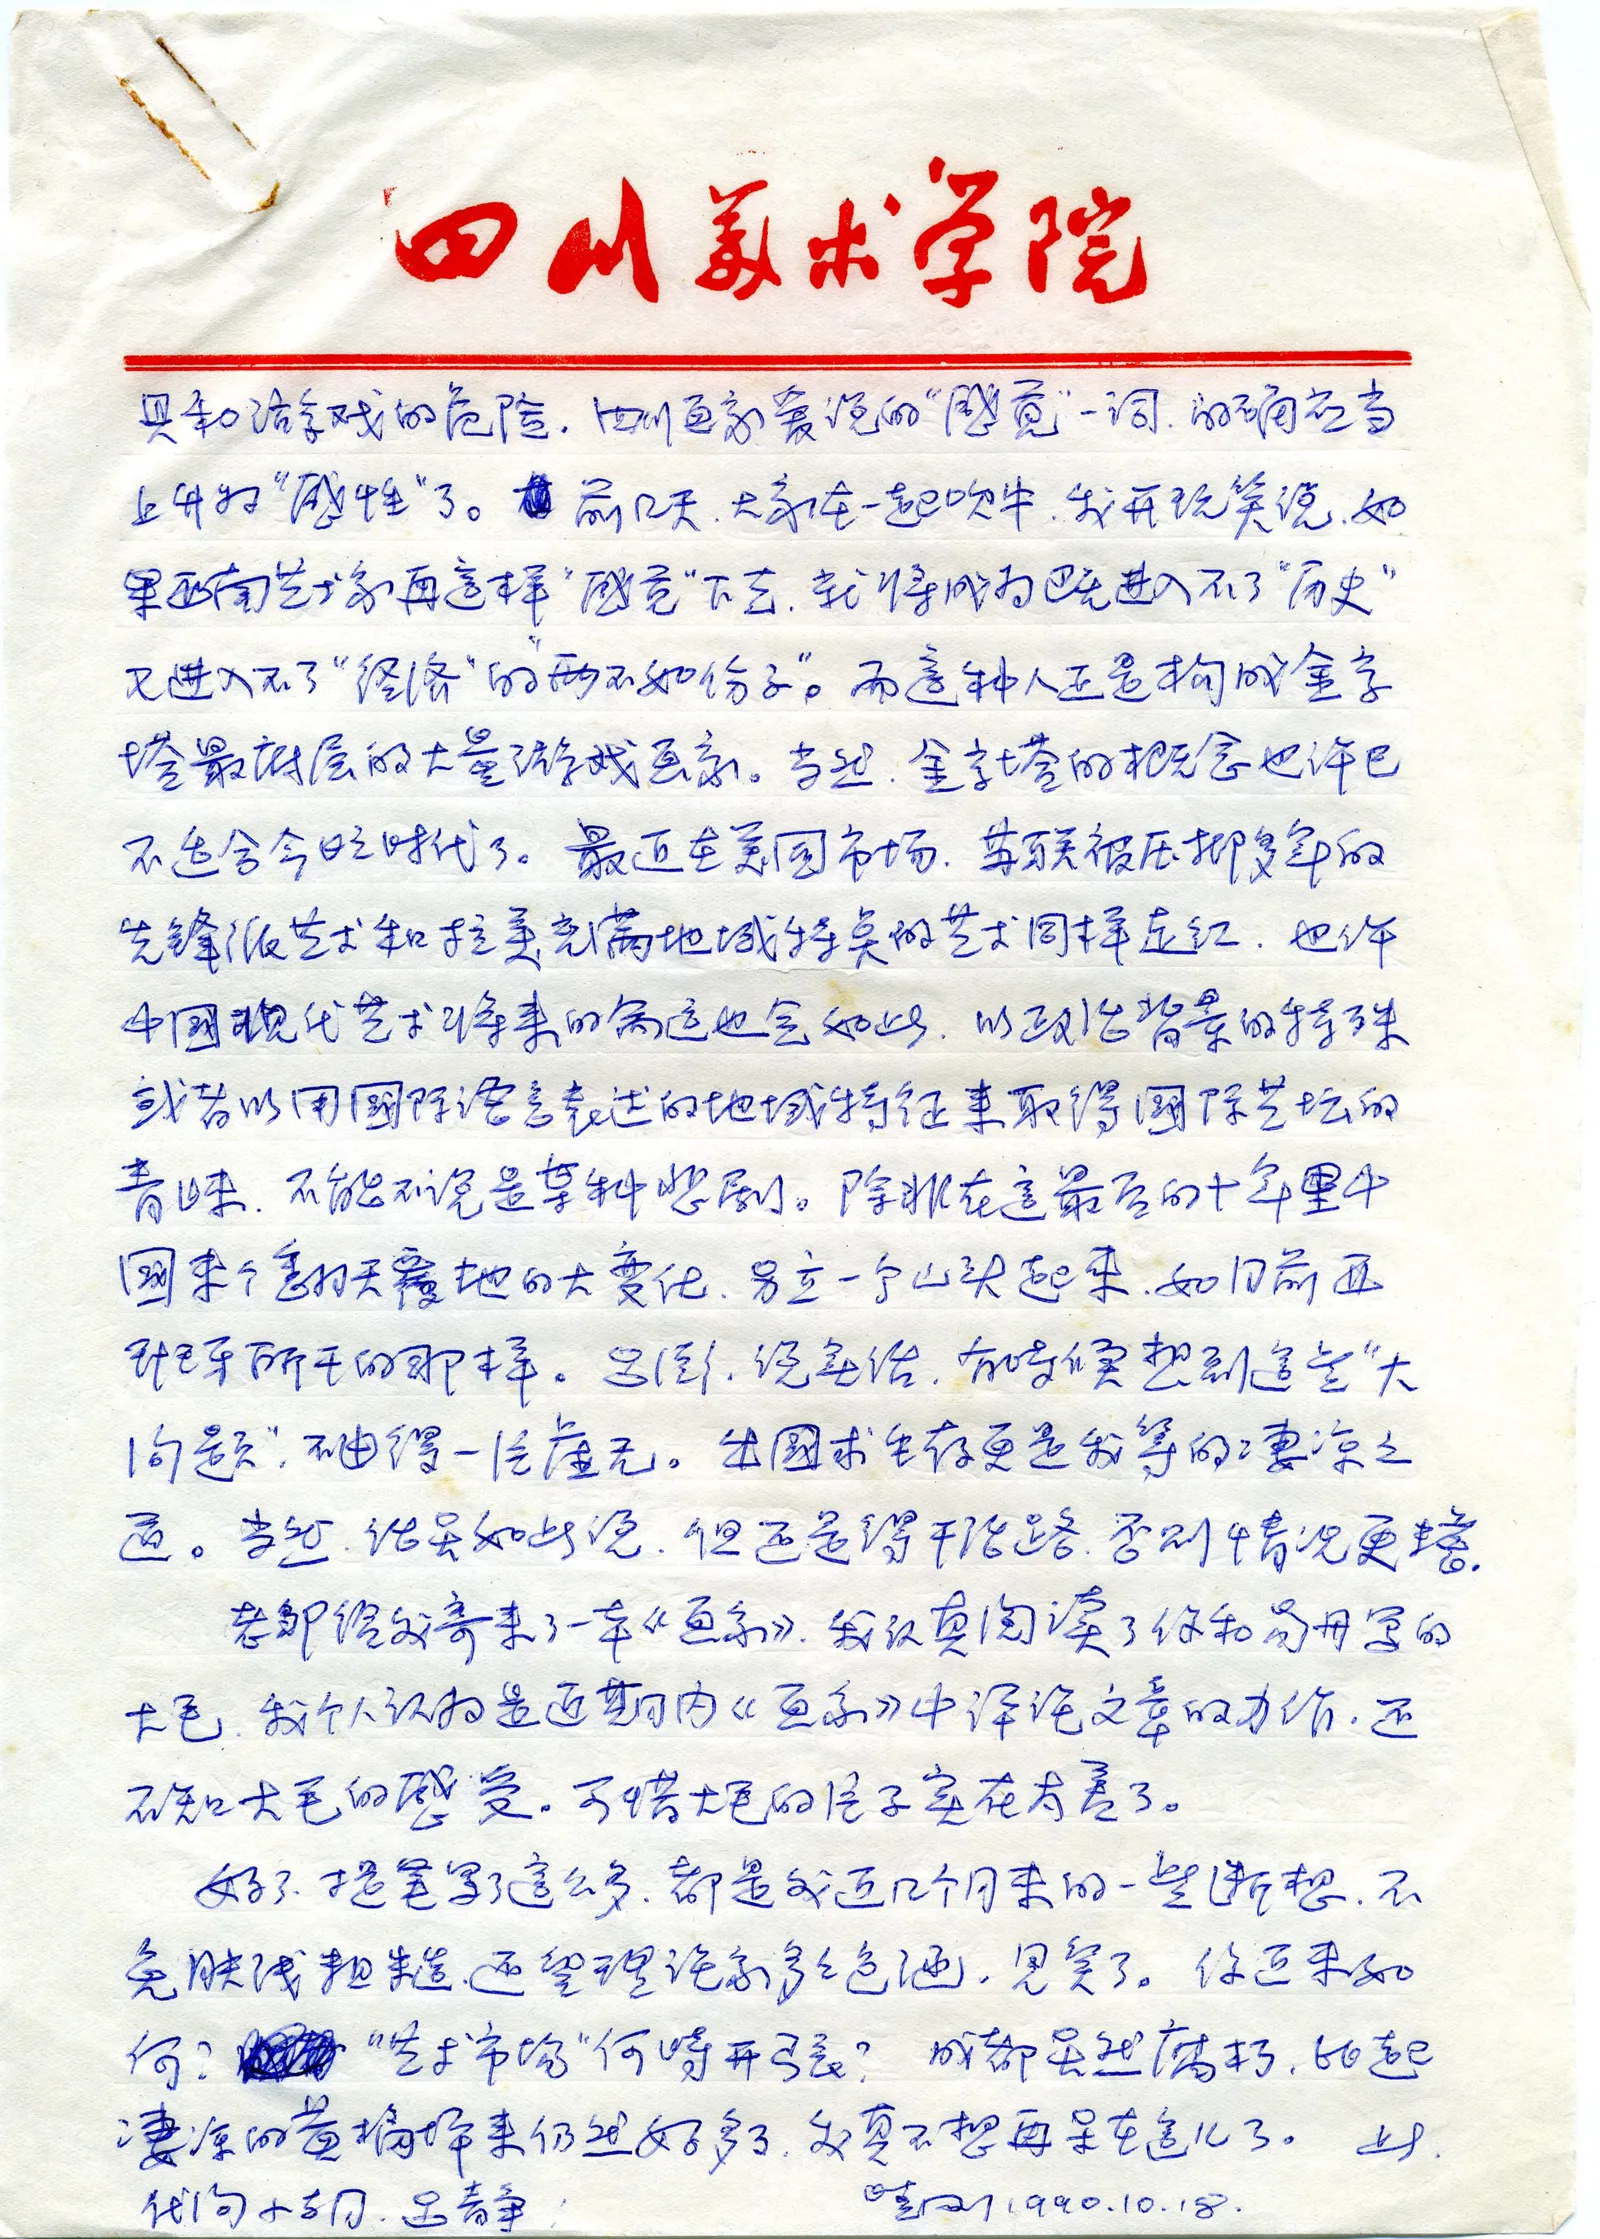 四川美术学院
具和游戏的危险。四川画家爱说的“感觉”一词，的确应当
上升为“感性”了。前几天，大家在一起吹牛，我开玩笑说，如
果西南艺术家再这样“感觉”下去，就将成为既进入不了“历史”
又进入不了“经济”的“两不如份子”。而这种人正是构成金字
塔最底层的大量游戏画家。当然，金字塔的概念也许已
不适合今日时代了。最近在美国市场，苏联被压抑多年的
先锋派艺术和拉美充满地域特点的艺术同样走红，也许
中国现代艺术将来的命运也会如此，以政治背景的特殊
或者以用国际语言表述的地域特征来取得国际艺坛的
青睐，不能不说是某种悲剧。除非在这最后的十年里中
国来个翻天覆地的大变化，另立一个山头起来，如目前西
班牙所干的那样。吕澎，说实话，有时候想到这些“大
问题”，不由得一片虚无。出国求生存更是我等的凄凉之
道。当然，话虽如此说，但还是得干活路，否则情况更糟。
老邹给我寄来了一本《画家》，我认真阅读了你和易丹写的
大毛，我个人认为是近期内《画家》中评论文章的力作，还
不知大毛的感受。可惜大毛的片子实在太差了。
好了，提笔写了这么多，都是我近几个月来的一些断想，不
免肤浅粗糙，还望理论家多多包涵，见笑了。你近来如
何？“艺术市场”何时开张？成都虽然腐朽，比起
凄凉的黄桷坪来仍然好多了，我真不想再呆在这儿了。此
代问小朋、吕静！晓刚 1990.10.18.